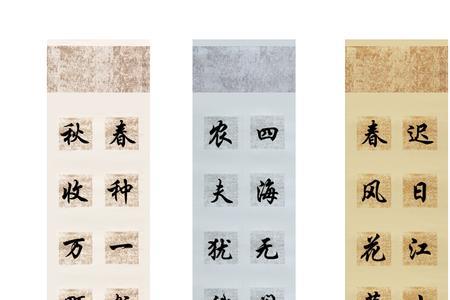 春种一
秋收万
四海无
农夫犹
迟日江
春风花